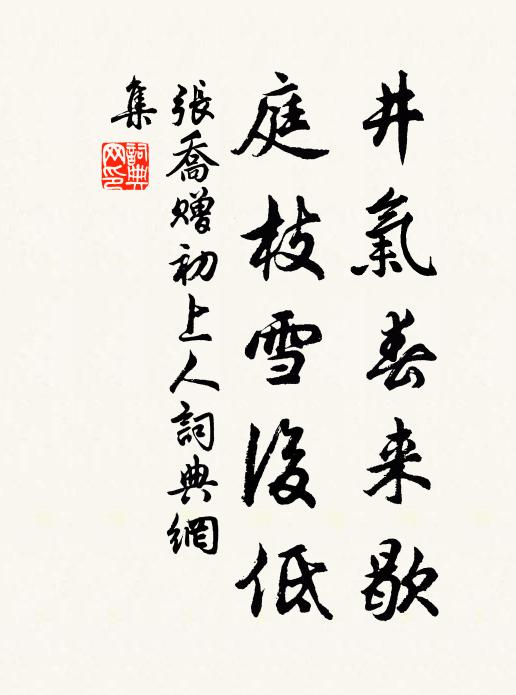 井氣春来歇
庭枝雪後低
張喬贈初上人詞典網
集
詞典
网印